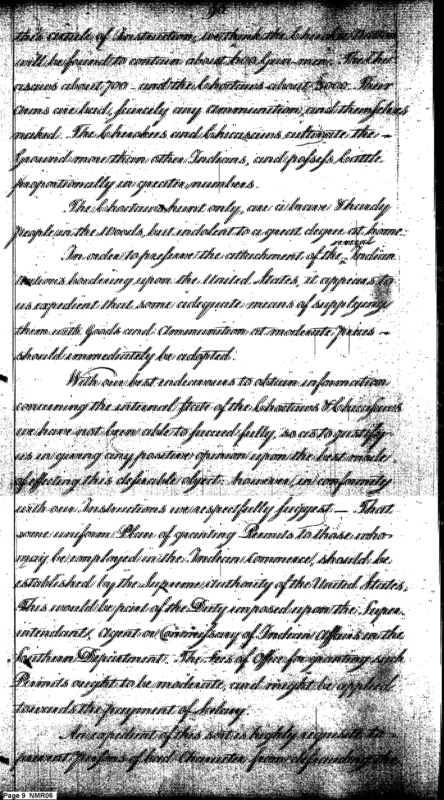 this article of Instruction, we think the Cherokee Nation
will be found to contain about Gun-men. The Chi-
casaws about 700 - and the Choctaws about 3000. Their
arms are bad, scarcely any ammunition, and themselves
naked. The Cherokees and Chicasaws cultivate the -
Ground more than other Indians, and possess Cattle
proportionally in greater numbers.
The Choctaws hunt only, are a brave & hardy
people in the Woods, but indolent to a great degree at home.
several
In order to preserve the attachment of the Indian
nations bordering upon the United States, it appears to
us expedient that some adequate means of supplying
them with Goods and Ammunition at moderate prices -
should immediately be adopted.
With our best endeavours to obtain information
concerning the internal state of the Choctaws &
we have not been able to succeed fully, so as to justify
us in giving any positive opinion upon the best mode
of effecting this desirable object: however, in conformity
with our Instructions we respectfully suggest - That
some uniform Plan of granting Permits to those who
may be employed in the Indian Commerce, should be
established by the Supreme Authority of the United States.
This would be part of the Duty imposed upon the Super-
intendant, Agent or Commissary of Indian Affairs in the
Southern Department. The Fees of Office for granting such
Permits ought to be moderate, and might be applied
towards the payment of Salary.
An expedient of this sort is highly requisite to
prevent persons of bad Character from defrauding the
Page 9 NMR06